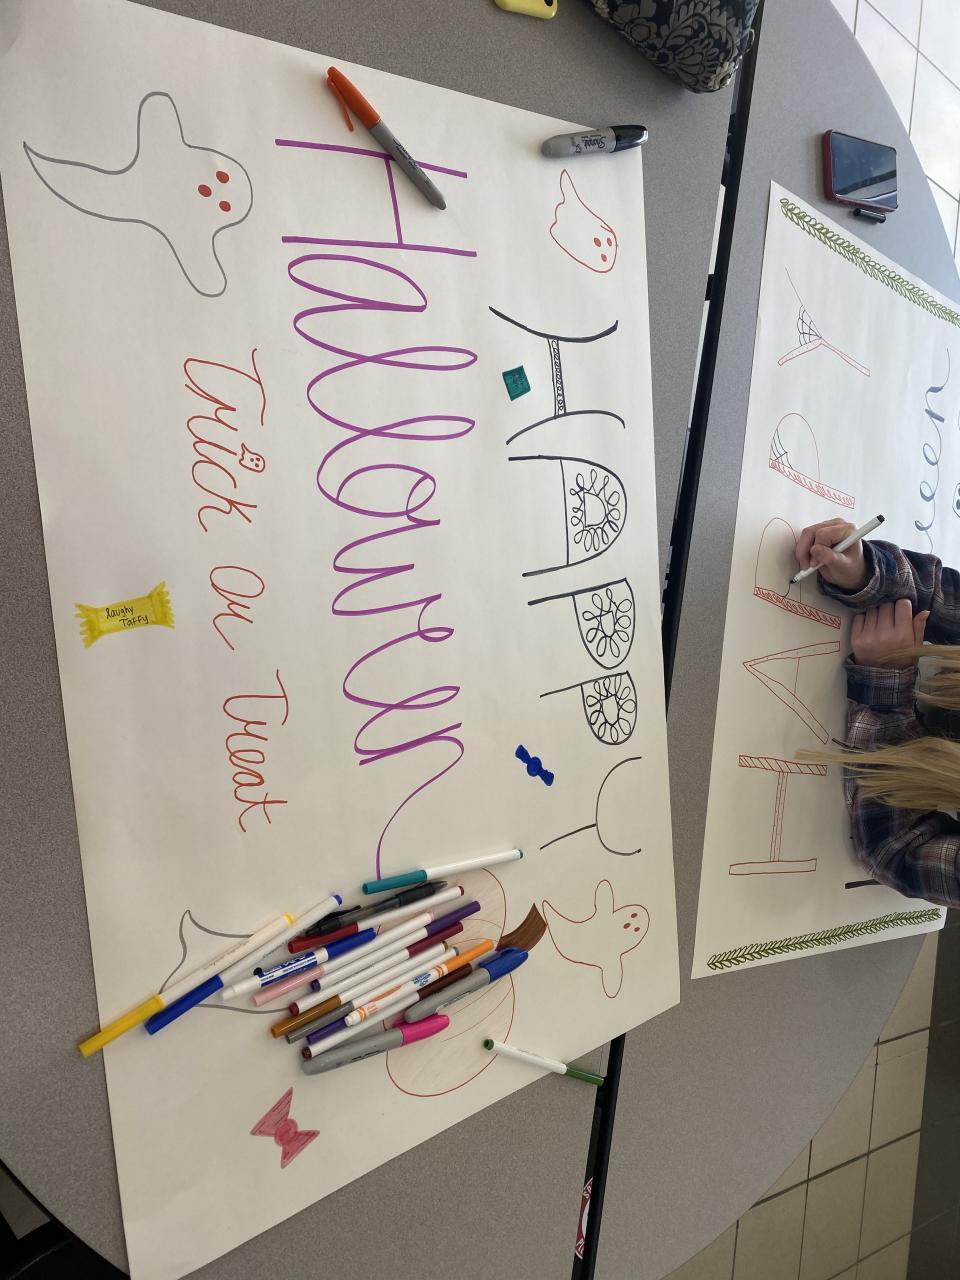 HAPPY
Halloween
Trick or Treat
laughy
Taffy
Sharpie
HAPPY
een